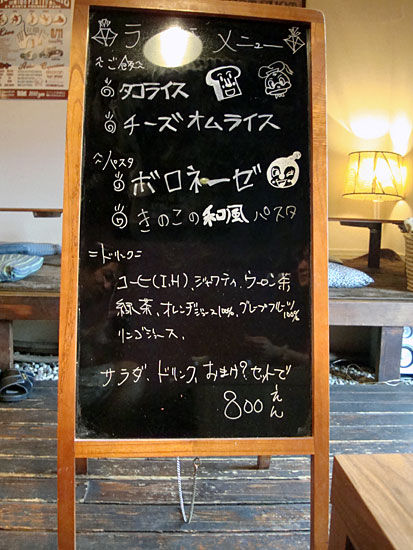 メニュー
ご飯
タコライス
チーズオムライス
パスタ
ボロネーゼ
きのこの和風パスタ
=ドリンク=
コーヒー(I.H)、ジャワティ、ウーロン茶
緑茶、オレンジジュース100%、グレープフルーツ100%
リンゴジュース、
サラダ、ドリンク、おまけ?セットで
800えん